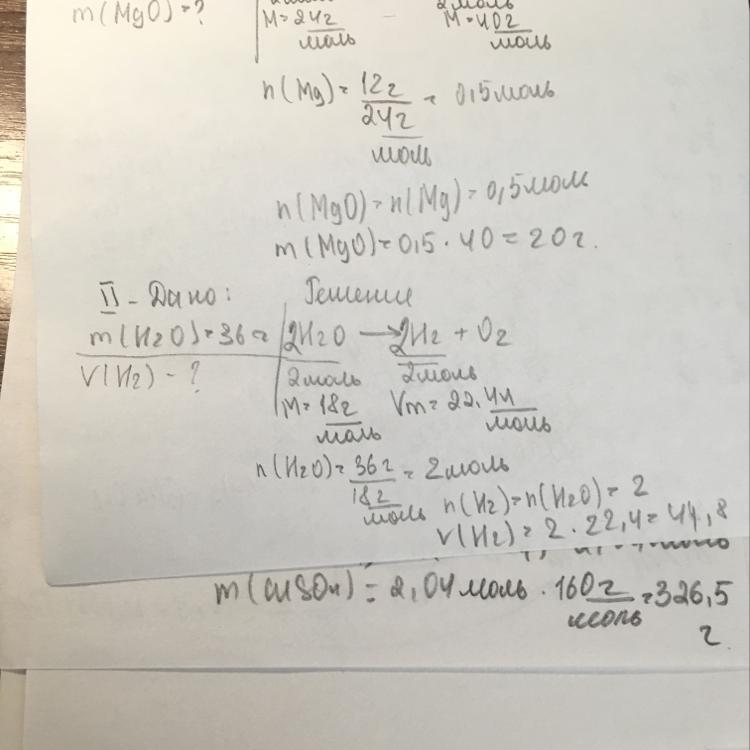 m(MgO)=?
M=24г/моль
2моль
M=40г/моль
n(Mg)=12г/24г/моль=0,5моль
n(MgO)=n(Mg)=0,5мол
m(MgO)=0,5·40=20г.
II-Дано: Решение
m(H2O)=36г 2H2O→2H2+O2
V(H2)-? 2моль 2моль
M=18г/моль Vm=22,4л/моль
n(H2O)=36г/18г/моль=2моль
n(H2)=n(H2O)=2
V(H2)=2·22,4=44,8
m(CuSO4)=2,04моль·160г/моль=326,5
г.